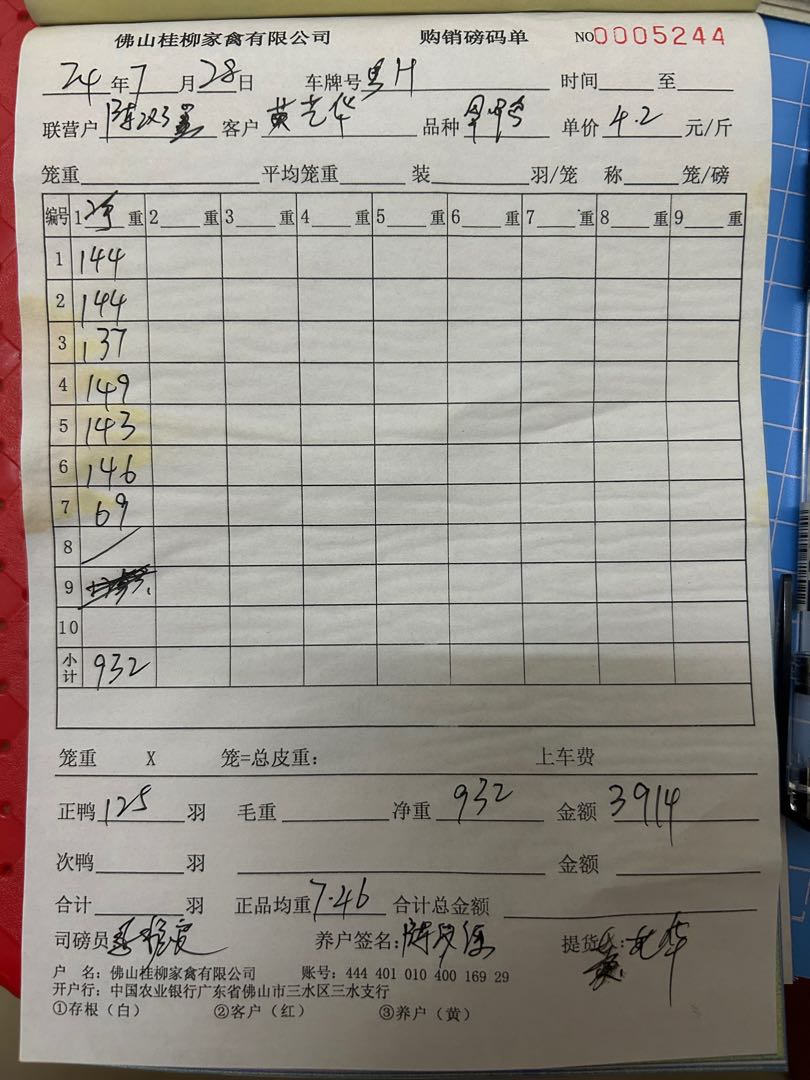 佛山桂柳家禽有限公司 购销磅码单 NO0005244
24年7月28日 车牌号 时间 至
联营户 陈 客户 黄艺华 品种 单价 4.2 元/斤
笼重 平均笼重 装 羽/笼 称 笼/磅
编号 1 净 重 2 重 3 重 4 重 5 重 6 重 7 重 8 重 9 重
1 144
2 144
3 137
4 149
5 143
6 146
7 69
8
9
10
小计 932
笼重 X 笼=总皮重: 上车费
正鸭 125 羽 毛重 净重 932 金额 3914
次鸭 羽 金额
合计 羽 正品均重 7.46 合计总金额
司磅员 养户签名: 陈 提货人: 华
户 名: 佛山桂柳家禽有限公司 账号: 444 401 010 400 169 29
开户行: 中国农业银行广东省佛山市三水区三水支行
①存根(白) ②客户(红) ③养户(黄)